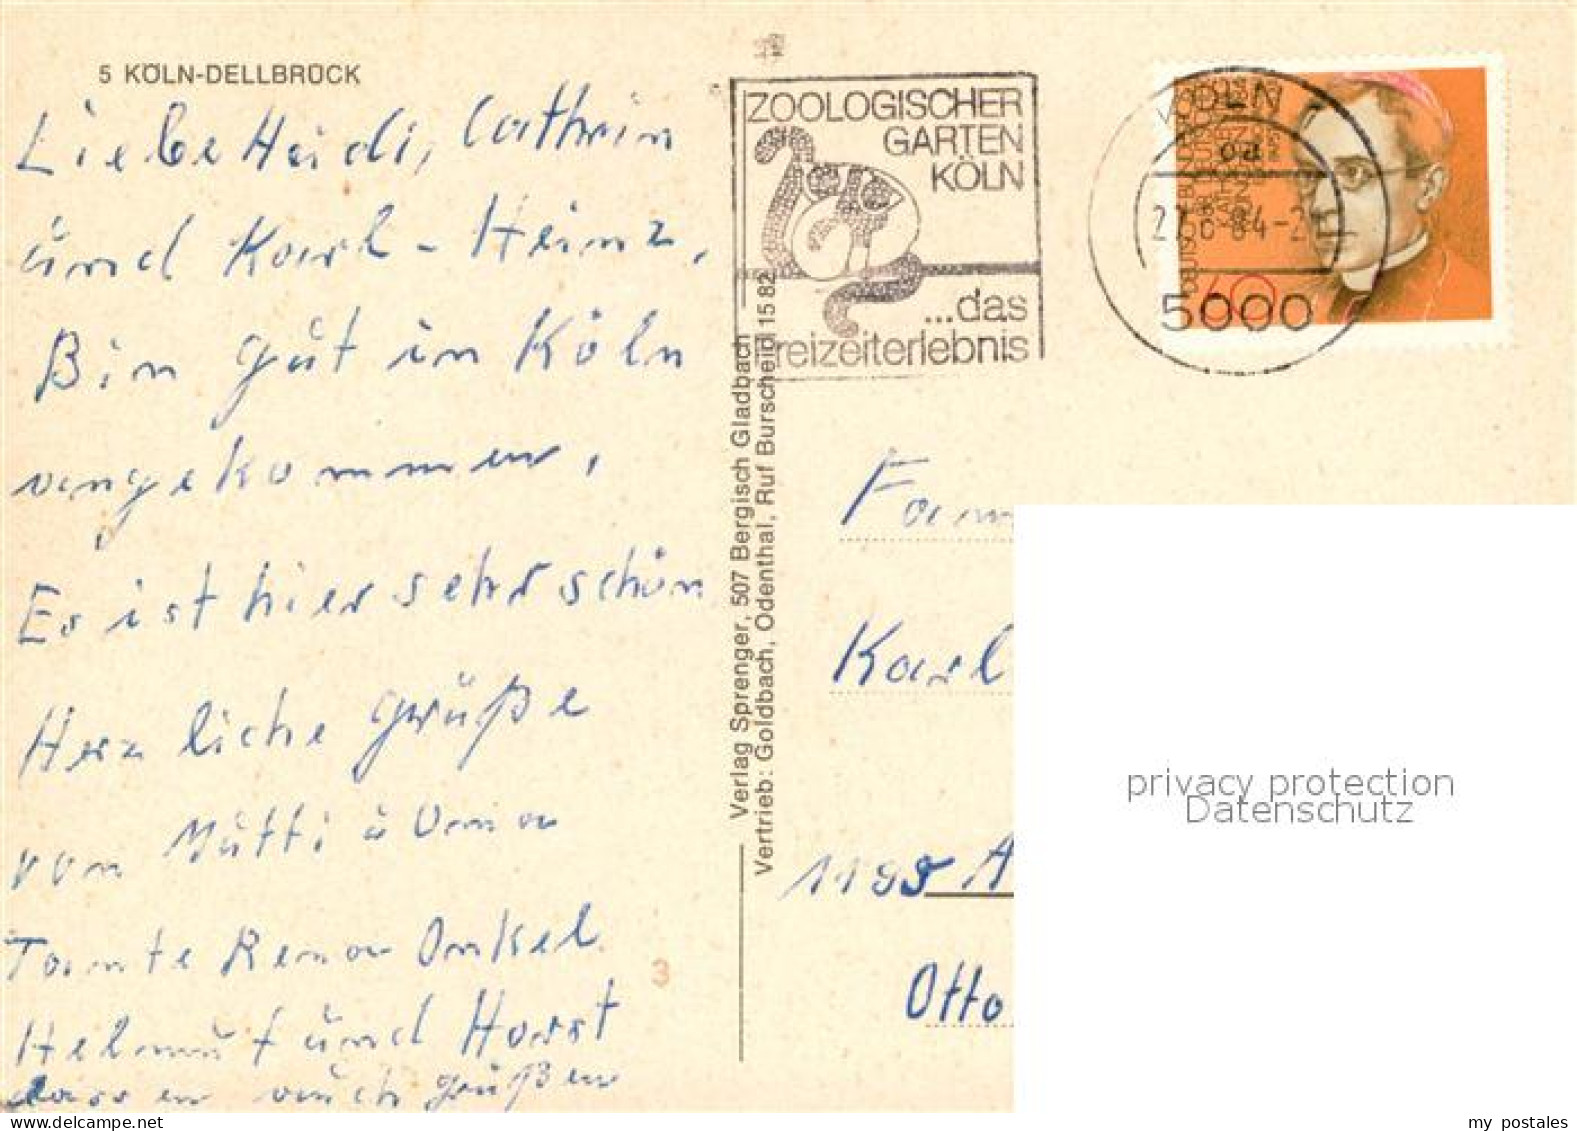 5 KÖLN-DELLBRÜCK
Liebe Heidi, Cathrin
und Karl-Heinz,
Bin gut in Köln
angekommen,
Es ist hier sehr schön
Herzliche Grüße
von Mutti u Oma
Tante Rena Onkel
Helmut und Horst
lassen auch grüßen
3
Verlag Sprenger, 507 Bergisch Gladbach
Vertrieb: Goldbach, Odenthal, Ruf Burscheid 15 82
ZOOLOGISCHER
GARTEN
KÖLN
...das
freizeiterlebnis
KÖLN
84-2
5000
60
Fam
Karl
1195 A
Otto
privacy protection
Datenschutz
my postales